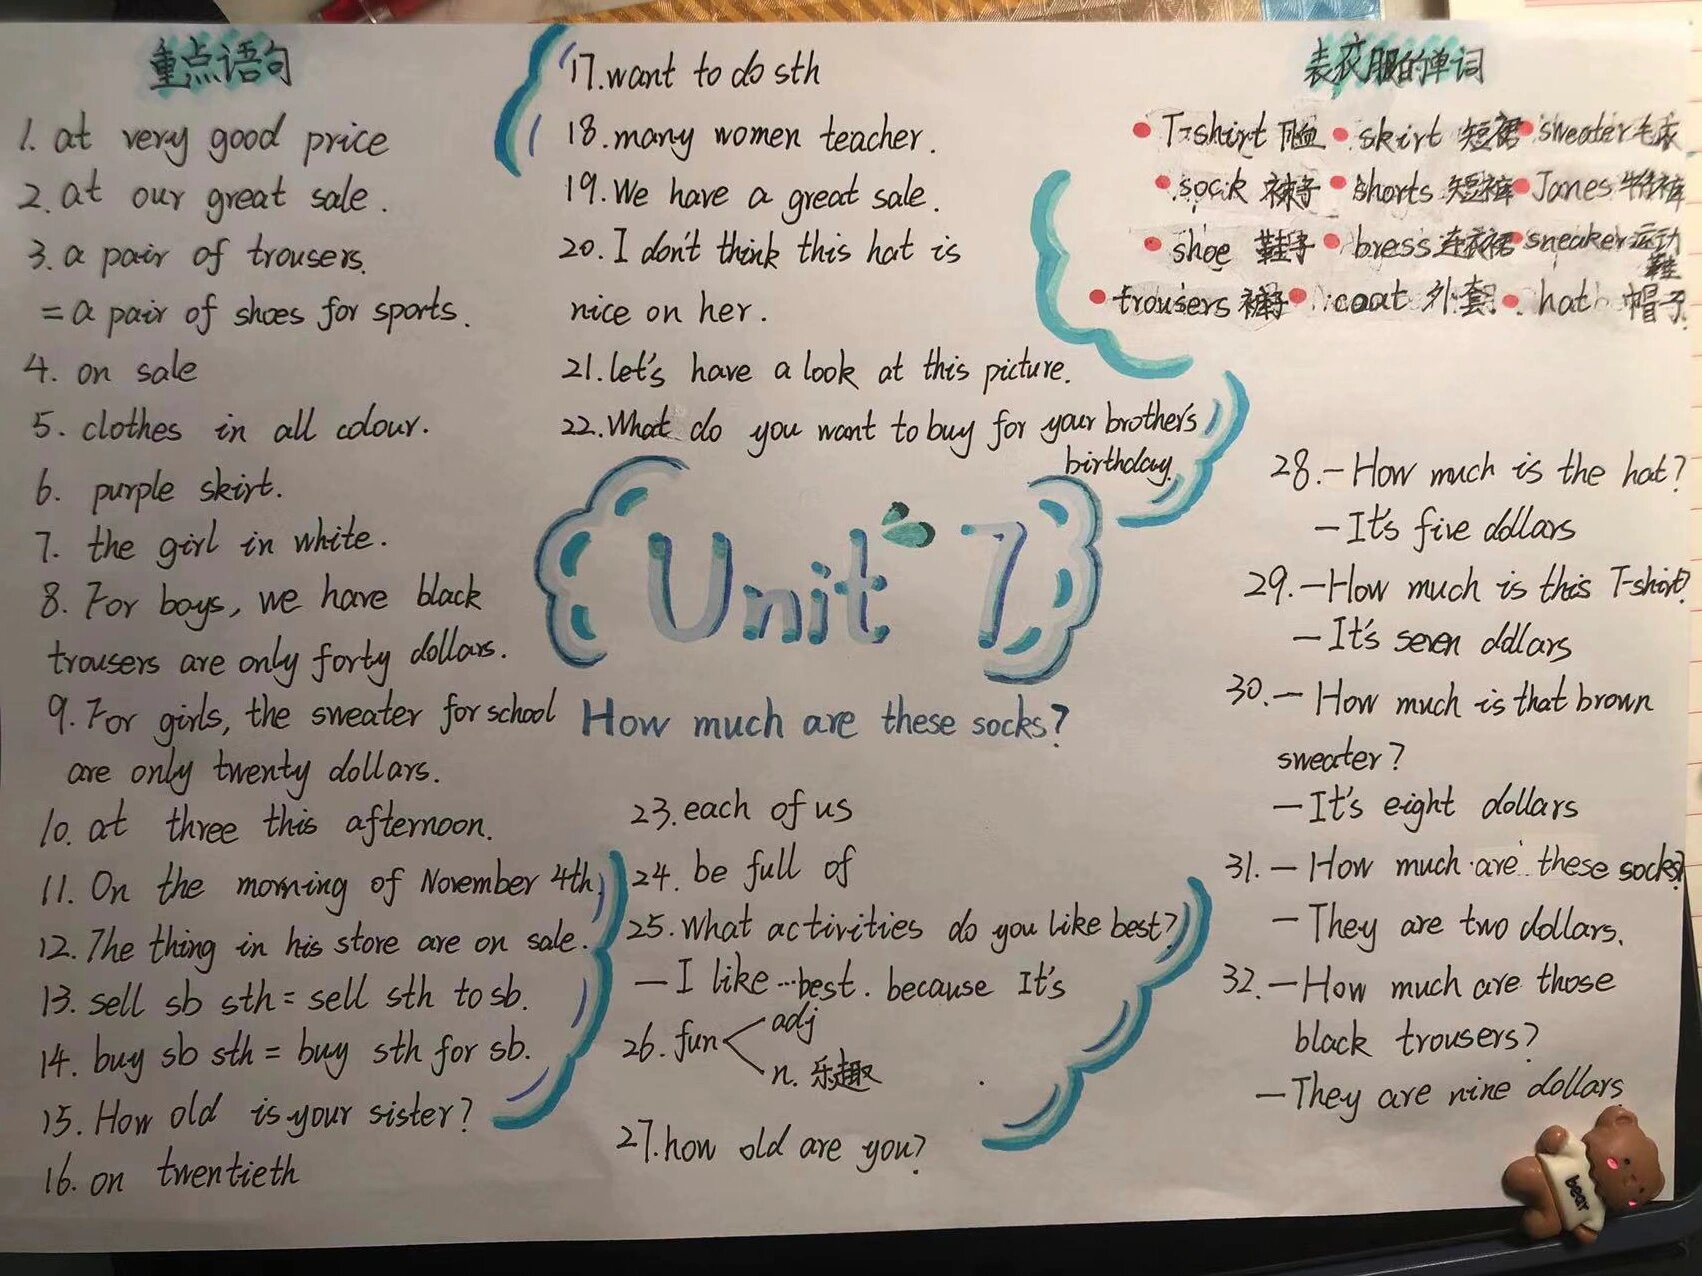 重点语句
1. at very good price
2. at our great sale.
3. a pair of trousers.
= a pair of shoes for sports.
4. on sale
5. clothes in all colour.
6. purple skirt.
7. the girl in white.
8. For boys, we have black
trousers are only forty dollars.
9. For girls, the sweater for school
are only twenty dollars.
10. at three this afternoon.
11. On the morning of November 4th
12. The thing in his store are on sale.
13. sell sb sth = sell sth to sb.
14. buy sb sth = buy sth for sb.
15. How old is your sister?
16. on twentieth
17. want to do sth
18. many women teacher.
19. We have a great sale.
20. I don't think this hat is
nice on her.
21. let's have a look at this picture.
22. What do you want to buy for your brother's
birthday.
Unit 7
How much are these socks?
23. each of us
24. be full of
25. What activities do you like best?
— I like ... best. because It's
26. fun adj
n. 乐趣
27. how old are you?
表衣服的单词
T-shirt T恤 skirt 短裙 sweater 毛衣
sock 袜子 shorts 短裤 Janes 牛仔裤
shoe 鞋子 bress 连衣裙 sneaker 运动
鞋
trousers 裤子 coat 外套 hat 帽子
28. — How much is the hat?
— It's five dollars
29. — How much is this T-shirt?
— It's seven dollars
30. — How much is that brown
sweater?
— It's eight dollars
31. — How much are these socks?
— They are two dollars.
32. — How much are those
black trousers?
— They are nine dollars
bear